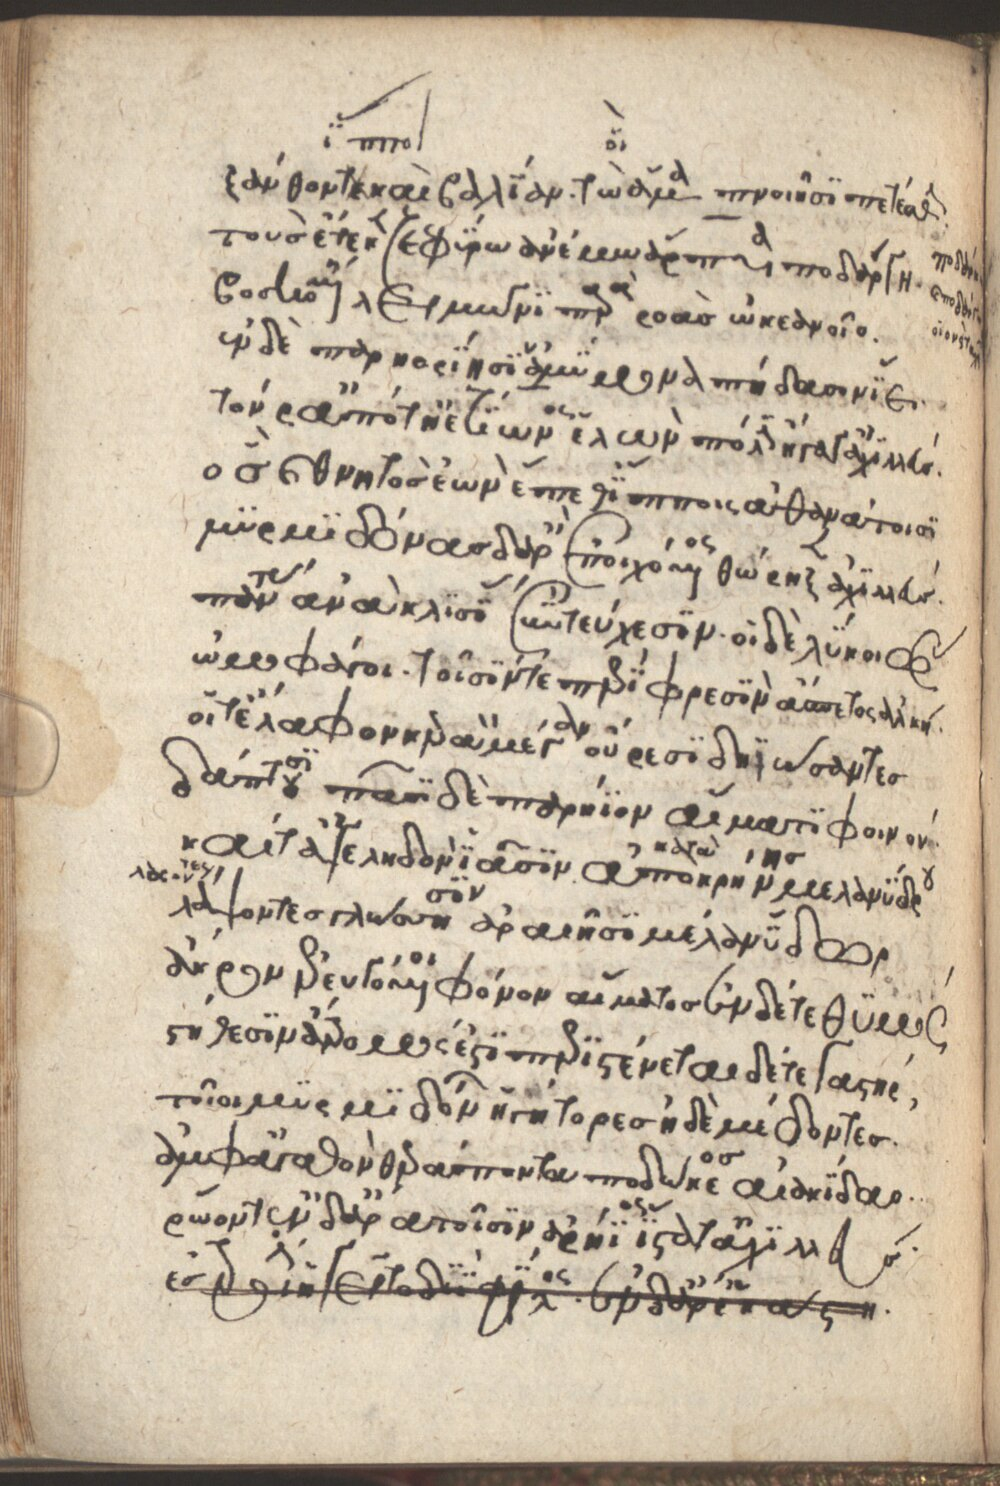 ἵπποι οἳ
ξάνθόν τε καὶ βαλίαν. τὼ ἅμα πνοιῆσι πετέσθην.
τοὺς ἔτεκε ζεφύρω ἀνέμω ἅρπυια ποδάργη.
βοσκομένη λειμῶνι παρὰ ῥοὰσ ὠκεανοῖο.
ἐν δὲ παρηορίησιν ἀμύμονα πήδασον ἵει.
τόν ῥα ποτ' ἠετίωνος ἑλὼν πόλιν ἤγαγ' ἀχιλλεύς.
ὃσ καὶ θνητὸσ ἐὼν ἕπεθ' ἵπποις ἀθανάτοισι
μυρμιδόνασ δ' ἄρ' ἐποιχόμενος θώρηξεν ἀχιλλεύσ.
πάντας ἀνὰ κλισίας σὺν τεύχεσιν. οἱ δὲ λύκοι ὣς
ὠμοφάγοι. τοῖσίν τε περὶ φρεσὶν ἄσπετος ἀλκή.
οἵ τ' ἔλαφον κεραὸν μέγαν οὔρεσι δηιώσαντες
δάπτουσι πᾶσι δὲ παρήϊον αἵματι φοινόν.
καί τ' ἀγεληδὸν ἴασιν ἀπὸ κρήνησ μελανύδρου
λάψοντεσ γλώσσησιν ἀραιῆσι μέλαν ὕδωρ
ἄκρον ἐρευγόμενοι φόνον αἵματοσ ἐν δέ τε θυμὸς
στήθεσιν ἄτρομός ἐστι περιστένεται δέ τε γαστήρ,
τοῖοι μυρμιδόνων ἡγήτορεσ ἠδὲ μέδοντεσ.
ἀμφ' ἀγαθὸν θεράποντα ποδώκεοσ αἰακίδαο.
ῥώοντ' ἐν δ' ἄρα τοῖσιν ἀρήϊος ἵστατ' ἀχιλλεύσ.